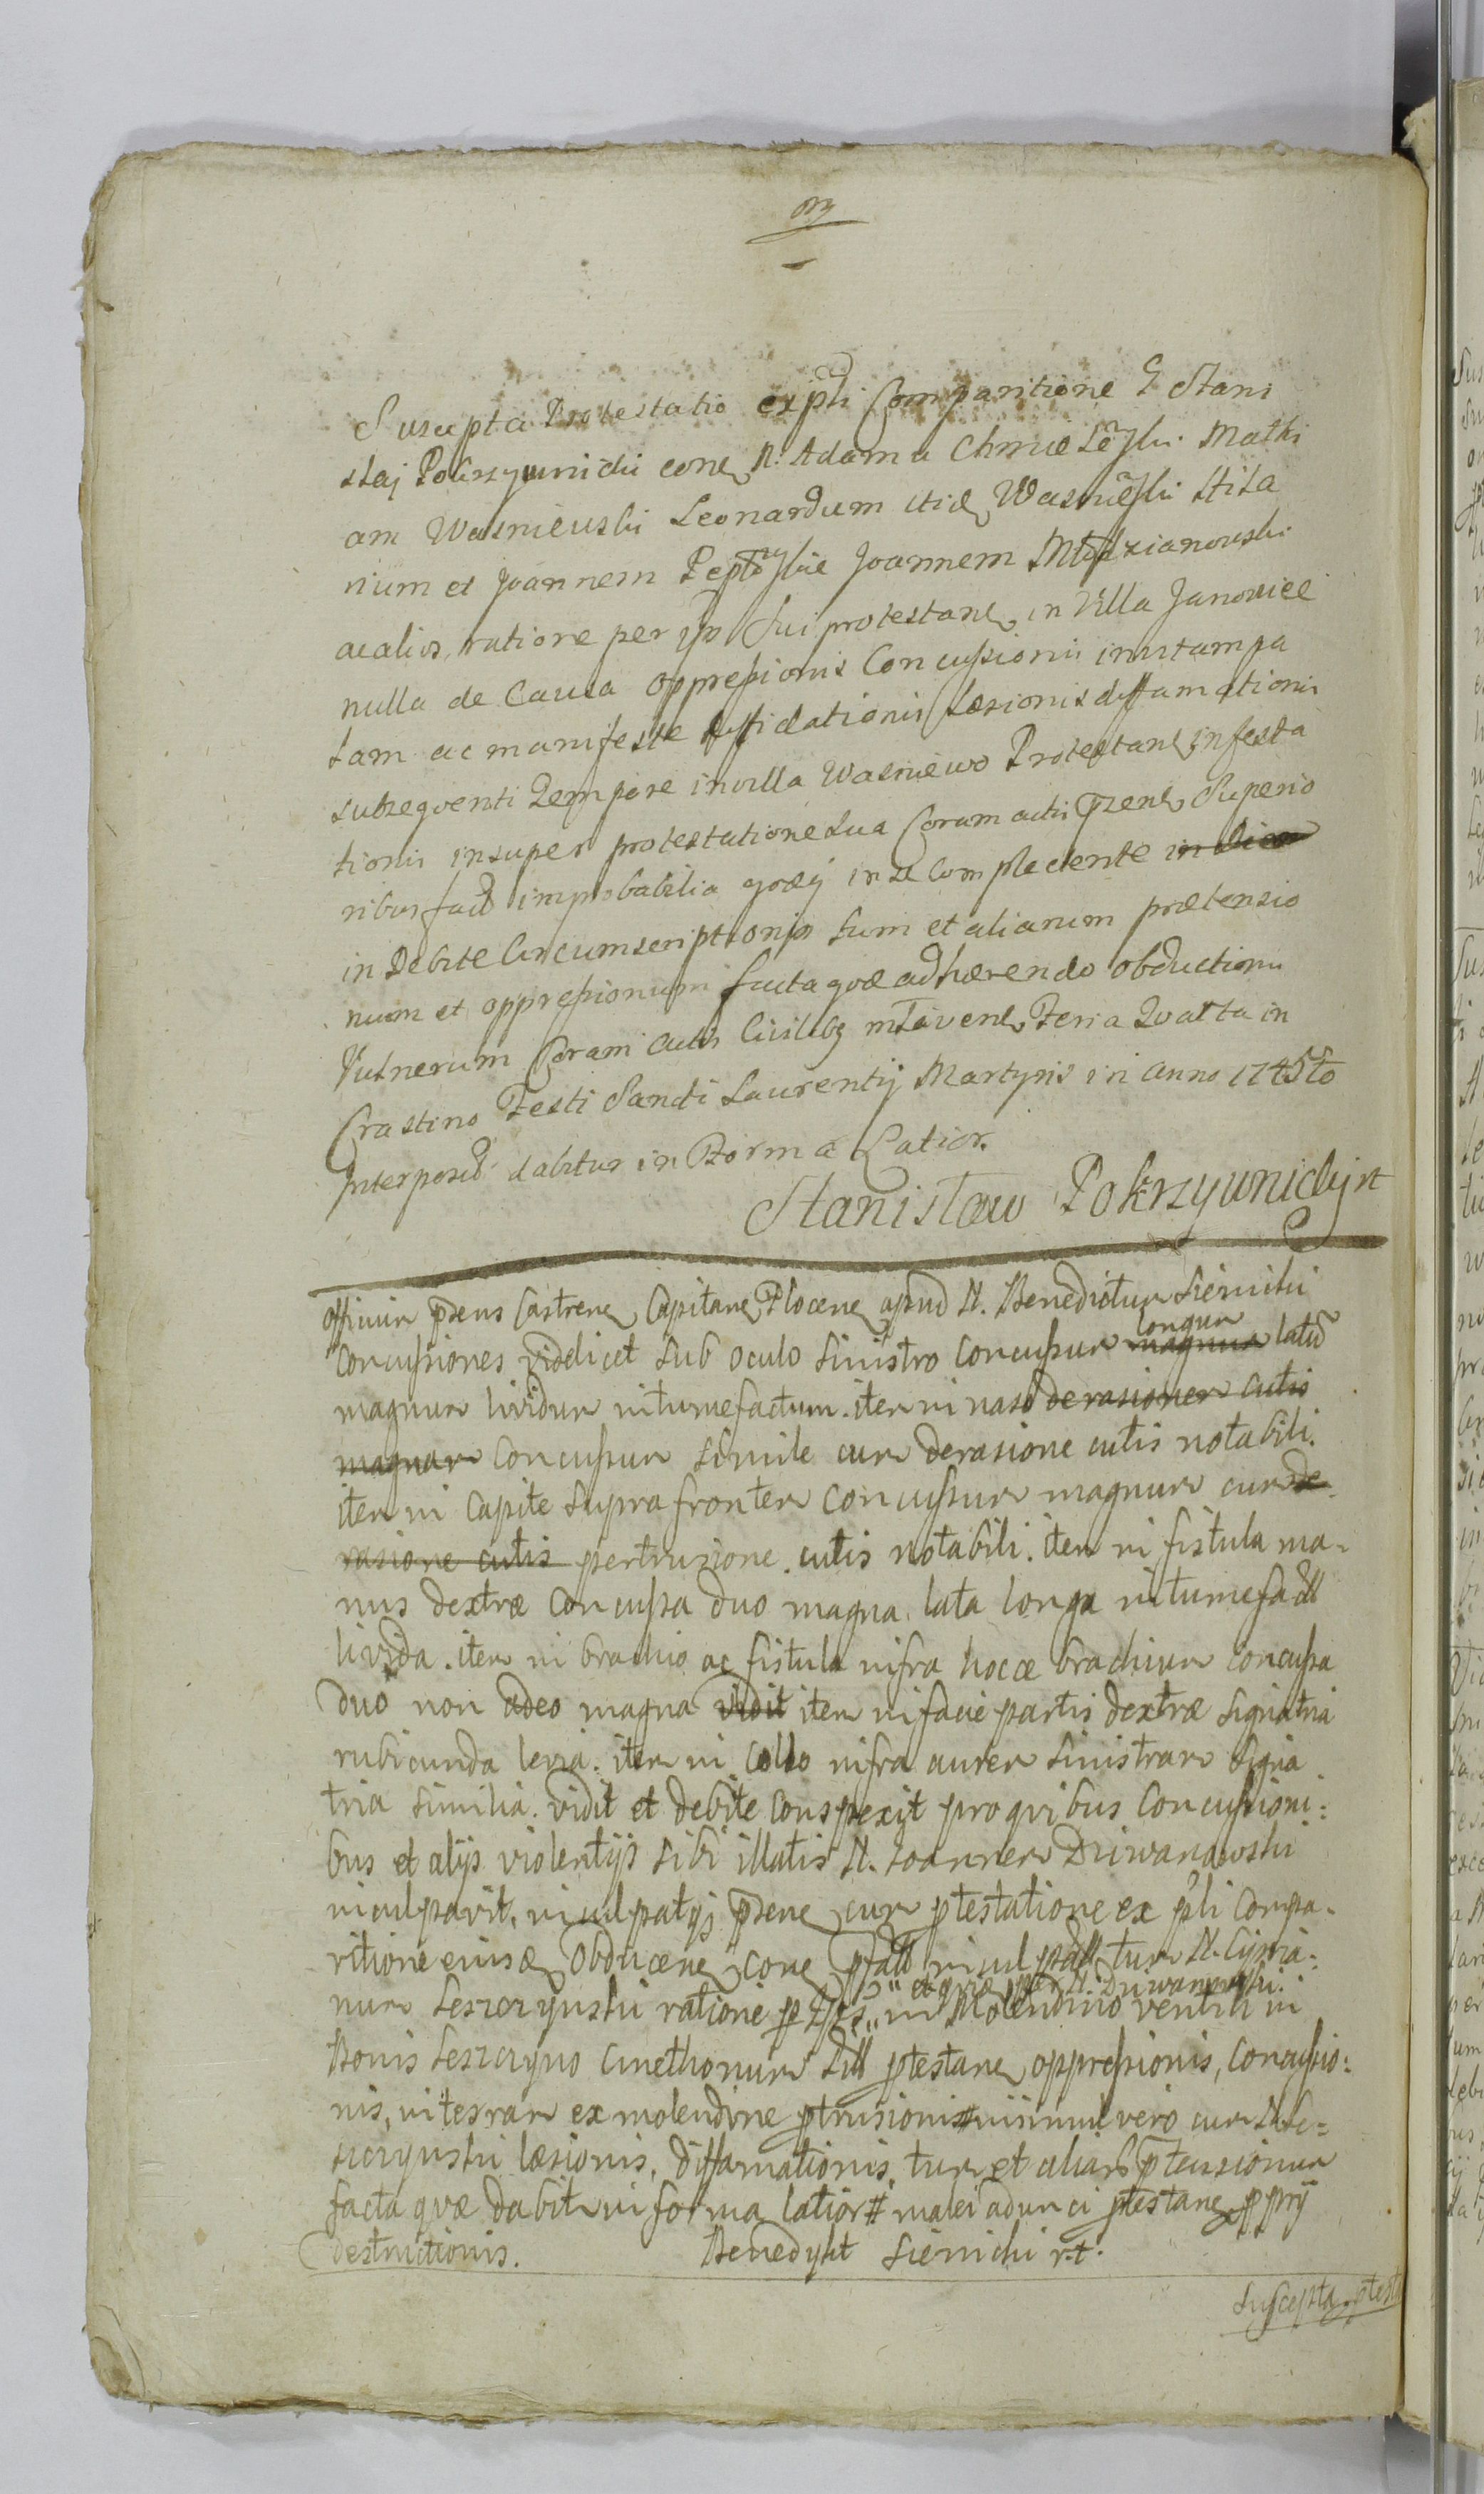 Suscepta Protestatio ex pſti Comparitione G Stani
slaj Pokrzywnicki con N. Adam a Chmielesky Mathi
am Wasniewski Leonardum itid Wasnieski Hila
rium et Joannem Joannem Młodzianowski
ac alios ratione per ip Sui protestan in Villa Janowice
nulla de Causa oppreſsionis Concuſsionis
tam ac manifeste diffidationis Læsionis diffamationis
subsequenti Tempore in villa Wasniewo Protestan infesta
tionis insuper protestatione Sua Coram actis Pzen Superio
ribus fact improbabilia in se Complectente
indebite Circumscriptionis tum et aliarum prætensio
num et oppreſsionum facta quæ adhærendo obductioni
Vulnerum Coram actis Civilibq Feria Quarta in
Crastino Festi Sancti Laurentij Martyris in Anno 1745to
Interposit dabitur in Forma Latior.
Stanisław Pokrzywnicki mt
Officium pzens Castren Capitan Plocen apud N. Benedictum Siemicki
concuſsiones videlicet sub oculo sinistro concuſsum longum latũ
magnum lividum intumefactum. item in naso derasionem cutis
magnam concuſsum simile cum derasione cutis notabili.
item in capite supra frontem concuſsum magnum cum de
rasione cutis pertruzione cutis notabili. item in fistula ma-
nus dextræ concuſsa duo magna lata longa intumefact
livida. item in brachio ac fistula infra hocce brachium concuſsa
duo non adeo magna vidit item in facie partis dextræ signa tria
rubicunda levia. item in collo infra aurem sinistram signa
tria similia. vidit et debite conspexit pro quibus concuſsioni:
bus et alijs violentijs sibi illatis N. Joannem Drwanowski
inculpavit. inculpatqj pzene cum ptestatione ex pſti compa-
ritione eiusd obducen con pfatt inculpatt tum N. Cypria:
num Leszczynski ratione in Molendino ventili in
Bonis Leszczyno Cmethonum Sitt ptestan oppreſsionis, concuſsio:
nis, in terram ex molendine ptrusionis # insimul vero cum N. Le-
szczynski læsionis, diffamationis, tum et aliar ptensionum
facta quæ dabit in forma latior # malei adunci ptestan pprij
destructionis. Benedykt Siemicki rt.
Suscepta ptest